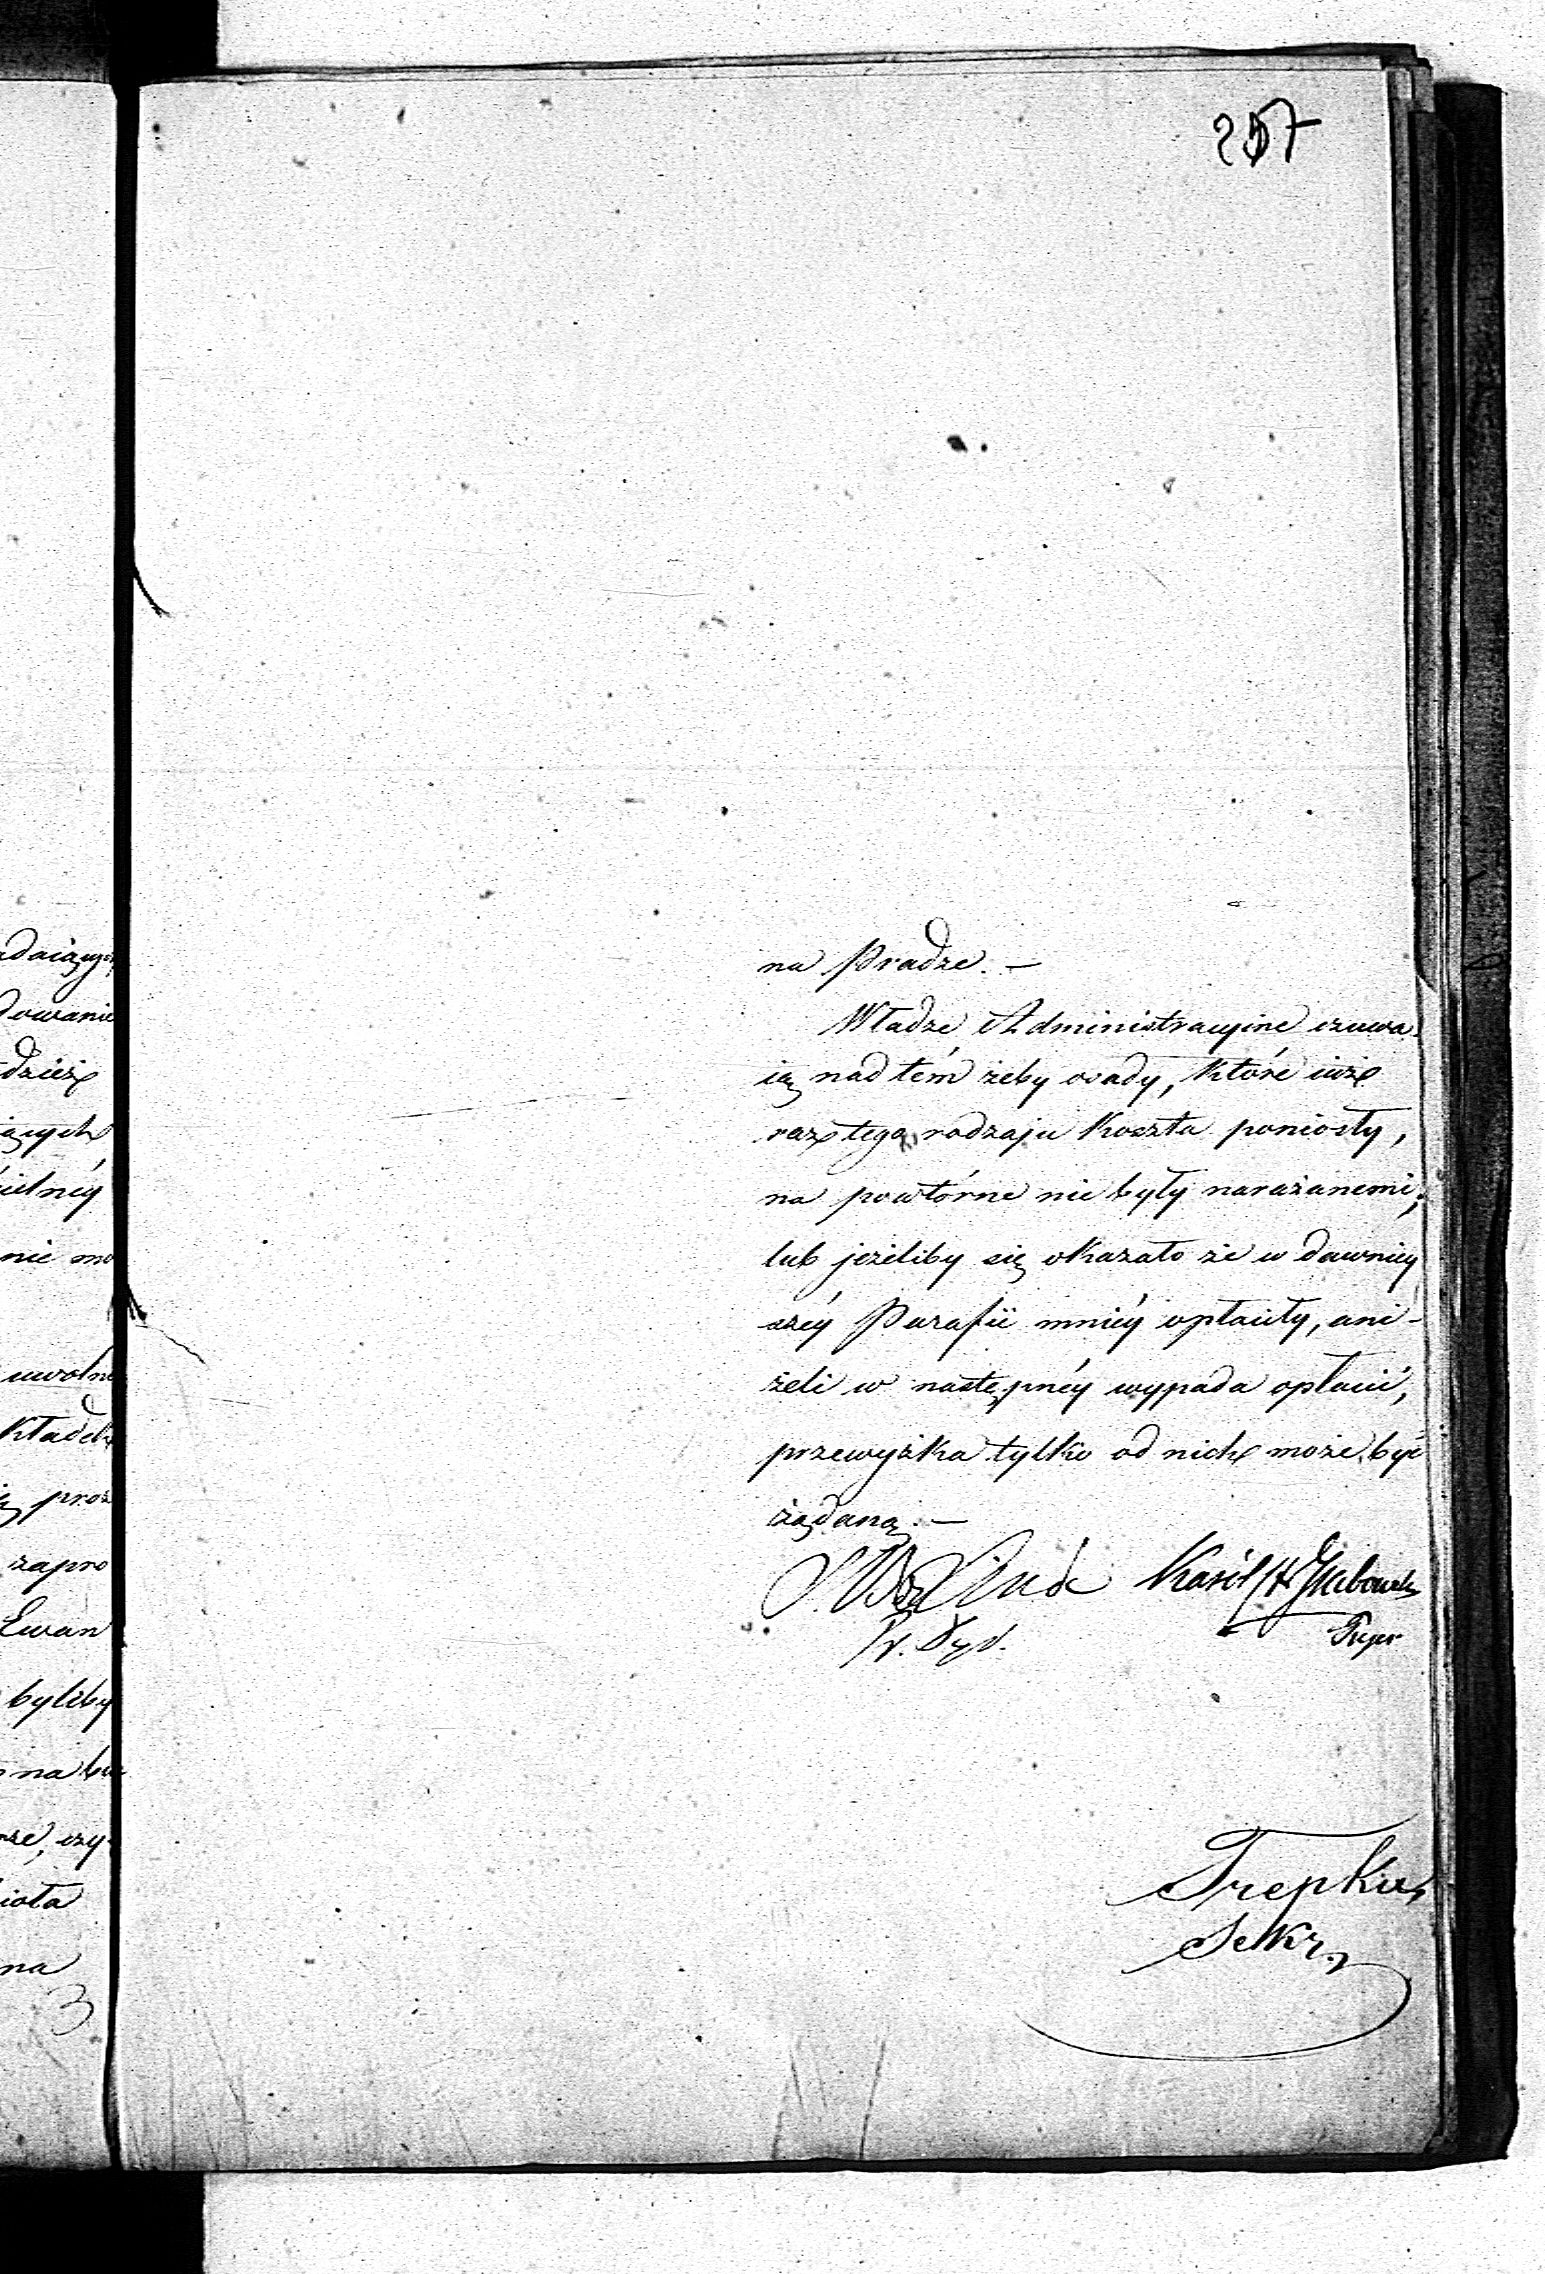 257
adaiących
dowanie
dzież
iących
ielnéy
nie mo
uwolni
kładek
ę proś
zapro
Ewan
byliby
na bu
rze, czy
iota
na
3
na Pradze. —
Władze Administracyine czuwa-
ią nad tém żeby osady, które iuż
raz tego rodzaju koszta poniosły,
na powtórne nie były narażanemi;
lub jeżeliby się okazało że w dawniey
széy Parafii mniéy opłaciły, ani-
żeli w następnéy wypada opłacić,
przewyżka tylko od nich może być
żądaną. —
Karól
Trepka
Sekr.